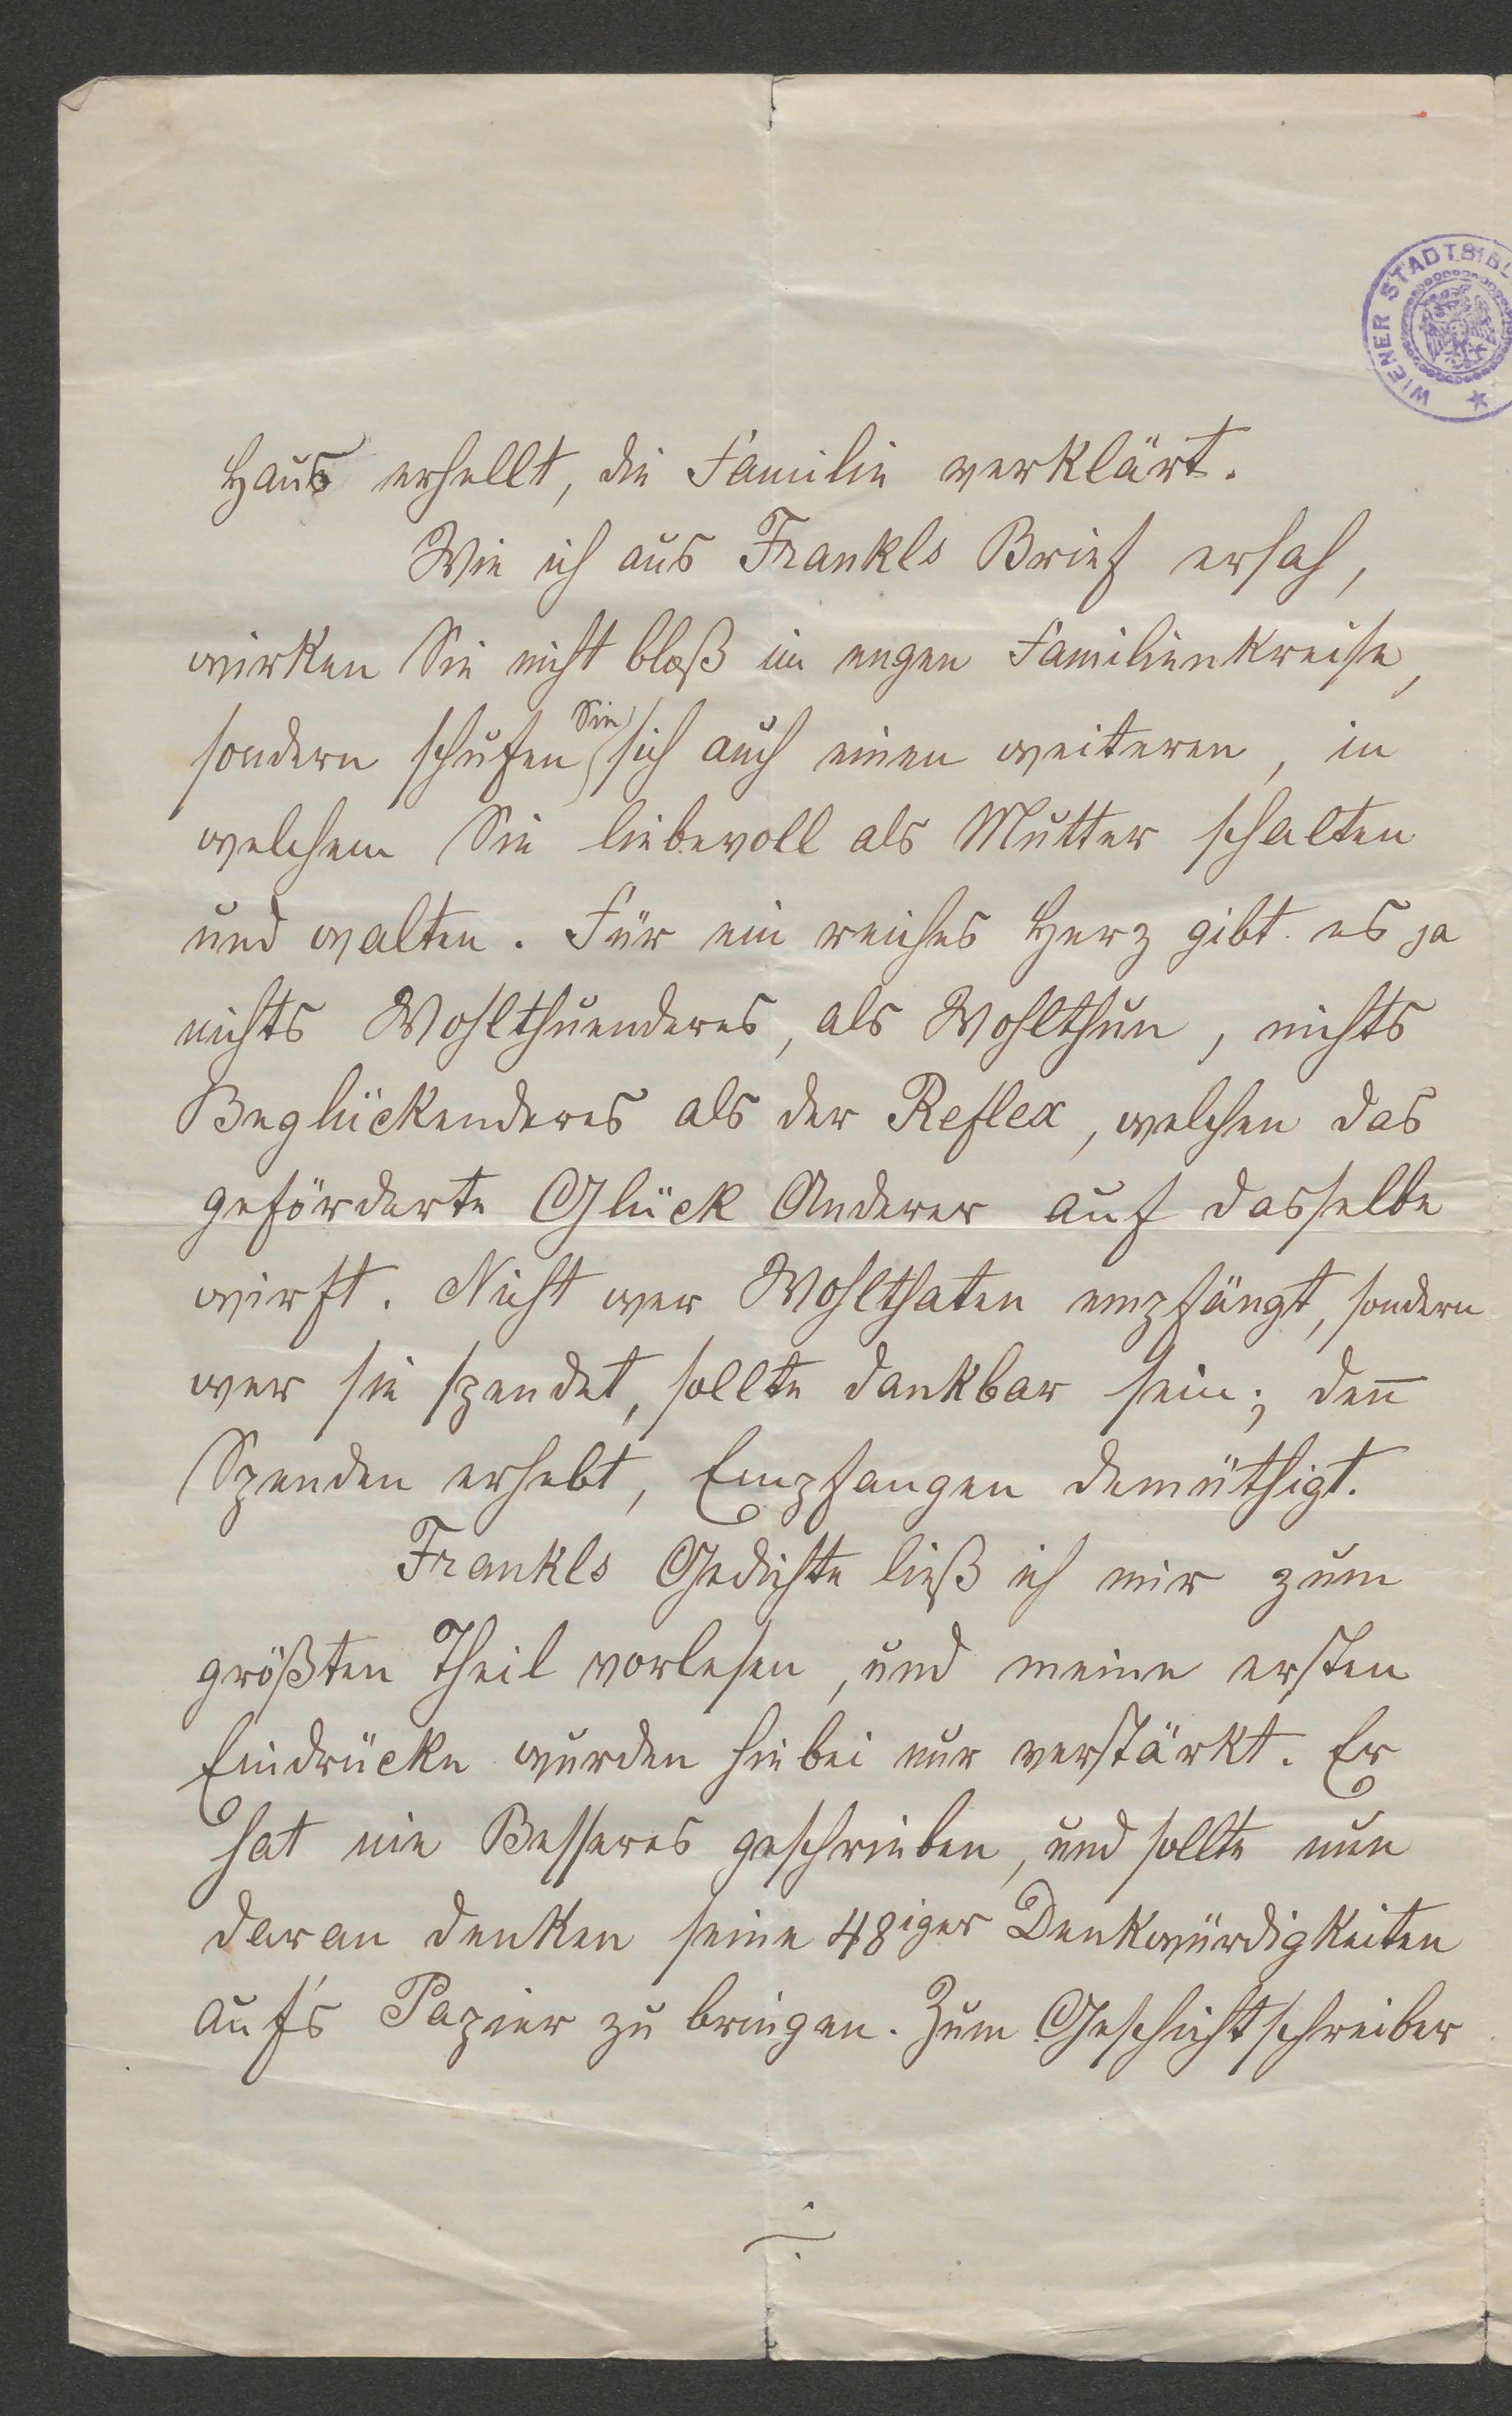 WIENER STADTBIBL
Haus erhellt, die Familie verklärt.
Wie ich aus Frankls Brief ersah,
wirken Sie nicht bloß im engen Familienkreise,
sondern schufen Sie sich auch einen weiteren, in
welchem Sie liebevoll als Mutter schalten
und walten. Für ein reiches Herz gibt es ja
nichts Wohlthuenderes, als Wohlthun, nichts
Beglückenderes als der Reflex, welchen das
geförderte Glück Anderer auf dasselbe
wirft. Nicht wer Wohlthaten empfängt, sondern
wer sie spendet, sollte dankbar sein; den̄
Spenden erhebt, Empfangen demüthigt.
Frankls Gedichte ließ ich mir zum
größten Theil vorlesen, und meine ersten
Eindrücke wurden hiebei nur verstärkt. Er
hat nie Besseres geschrieben, und sollte nun
daran denken seine 48iger Denkwürdigkeiten
auf's Papier zu bringen. Zum Geschichtschreiber